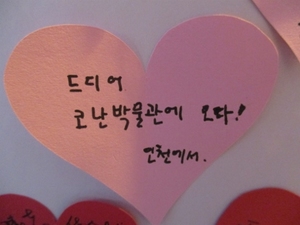 드디어
코난박물관에 오다!
연천에서.